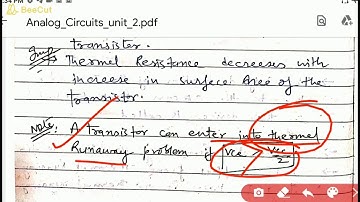 BeeCut
Analog_Circuits_unit_2.pdf
transistor.
Imp → Thermal Resistance decreases with
increase in Surface Area of the
transistor.
Note: A transistor can enter into thermal
Runaway problem if VCE > VCC/2